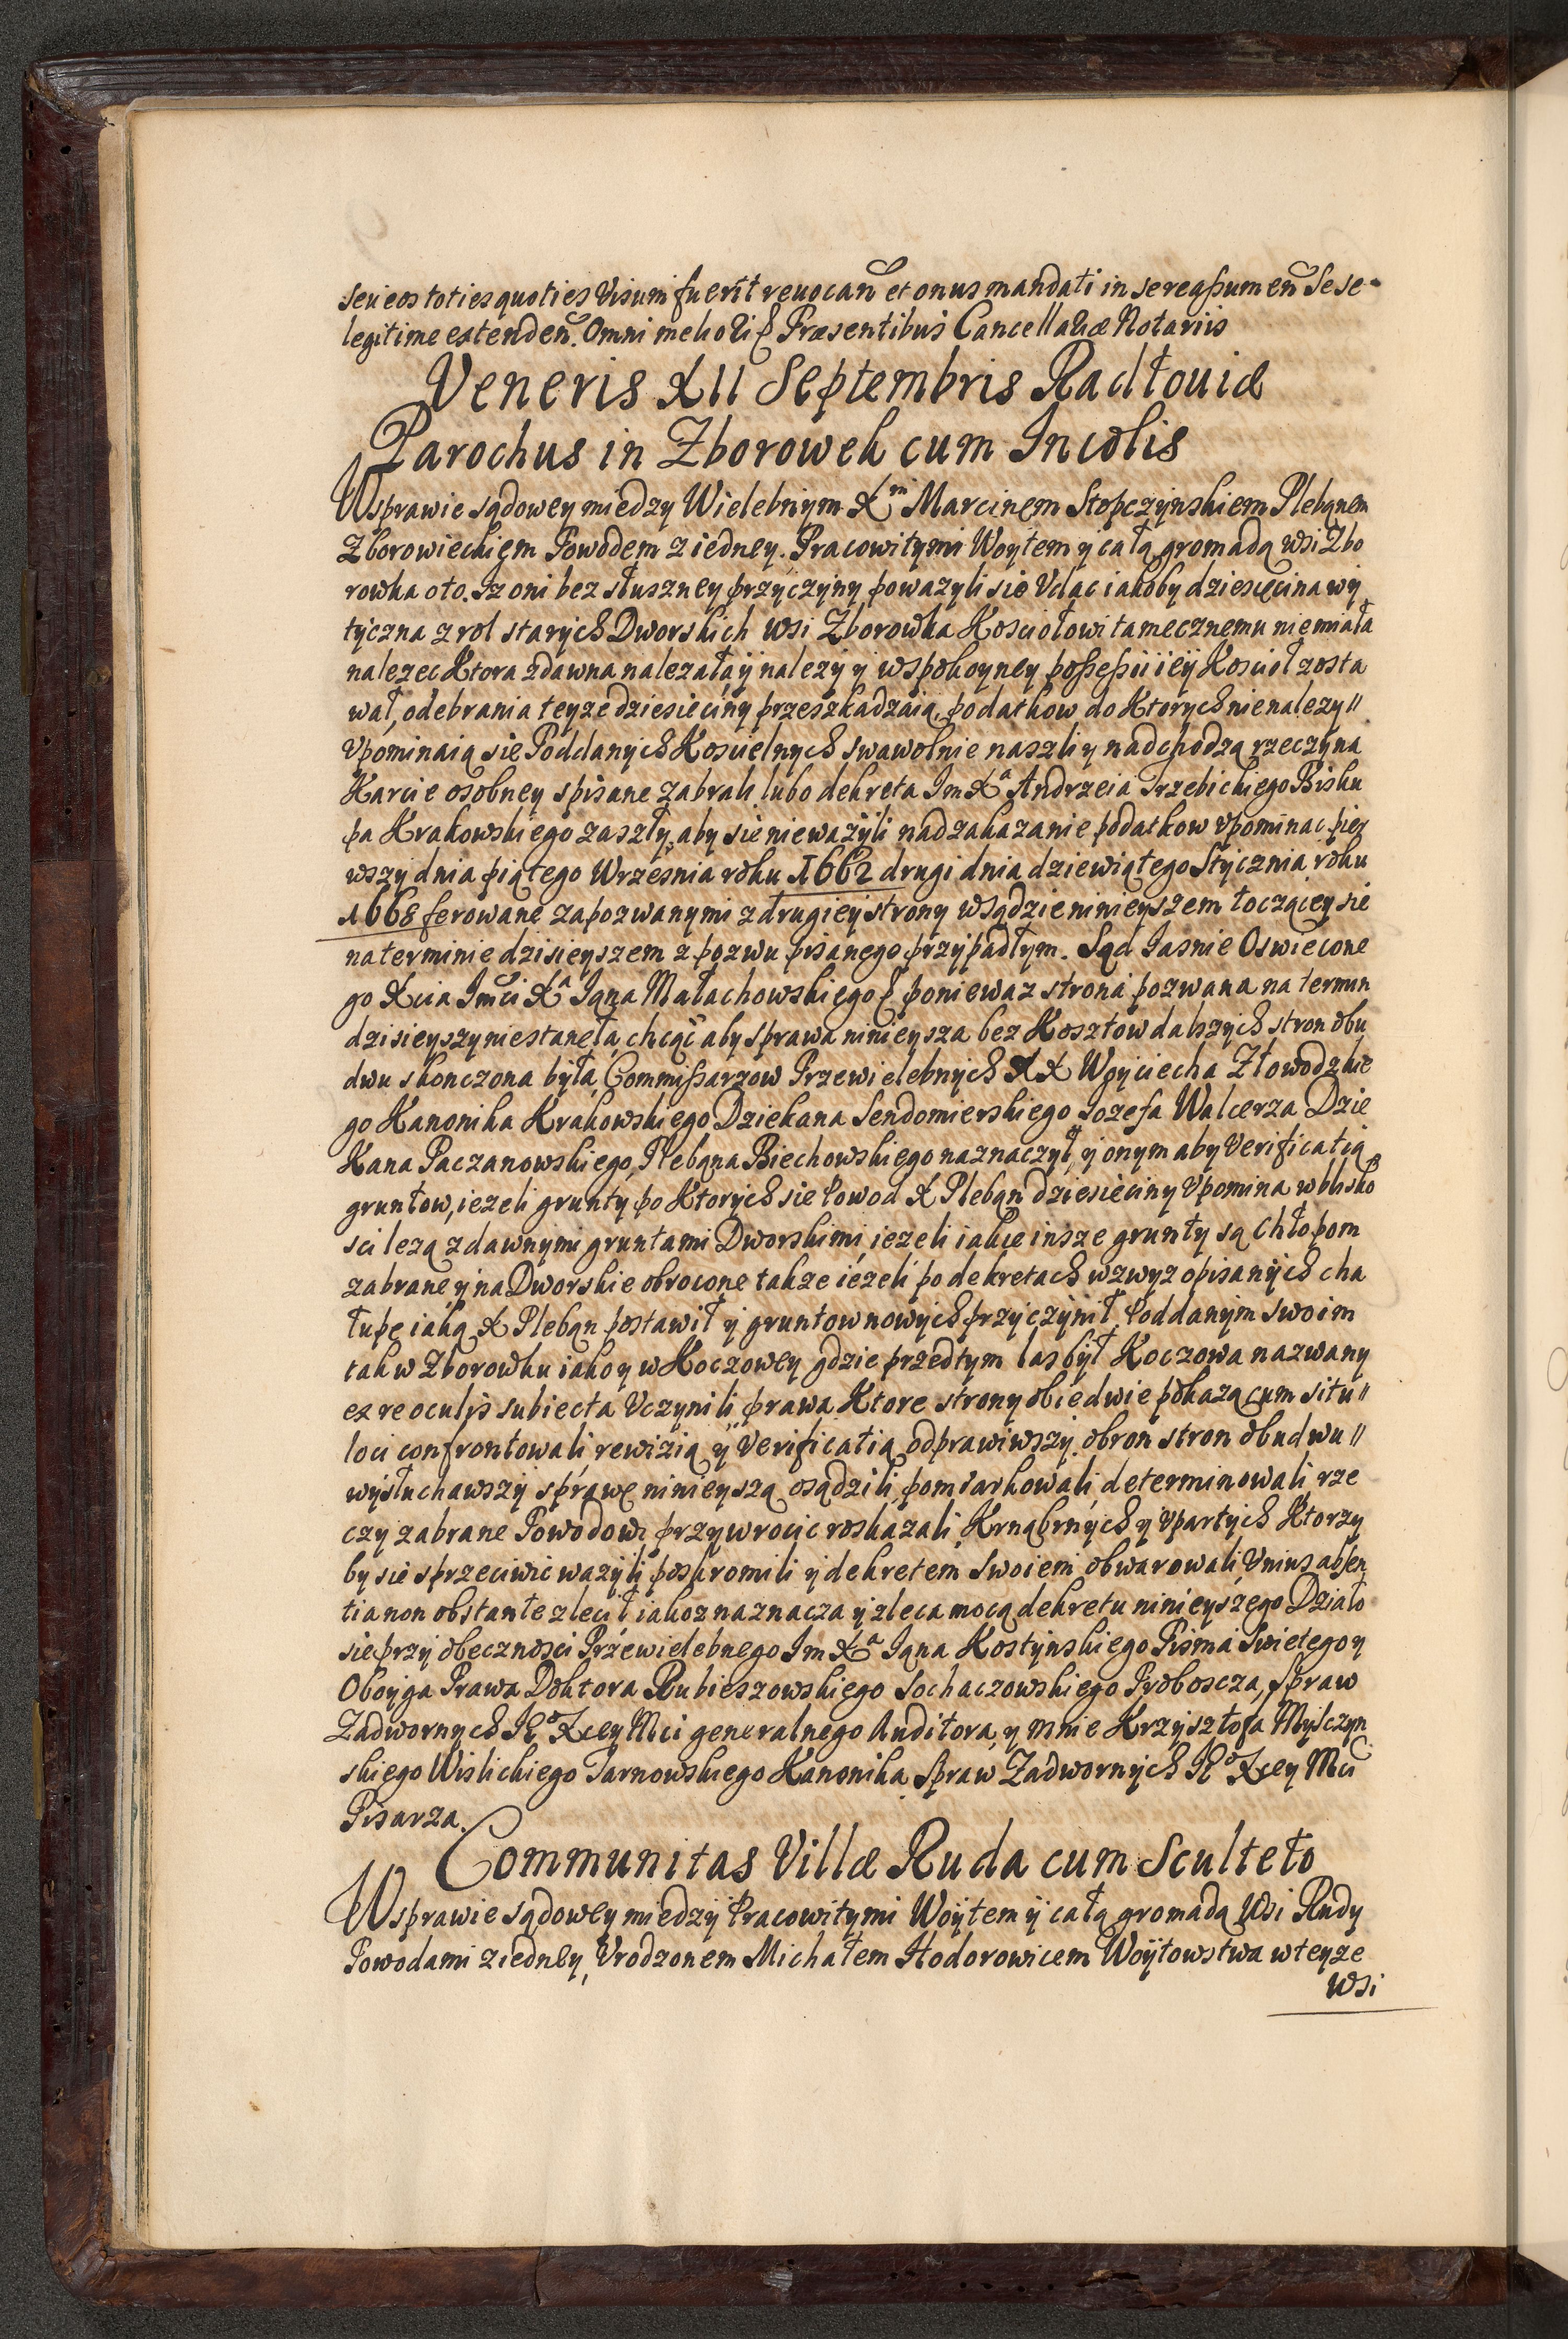 seu eos toties quoties Visum fuerit reuocan̄ et onus mandati in se reaßumen̄ Sese
legitime extenden̄. Omni meliori & Præsentibus Cancellariæ Notariis
Veneris XII Septembris Radłouiæ
Parochus in Zborowek cum Incolis
W sprawie sądowey miedzy Wielebnym Xm Marcinem Stopczynskiem Plebąnem
Zborowieckiem Powodem z iedney. Pracowitymi Woytem y całą gromadą wsi Zbo
rowka oto. Iz oni bez słuszney przyczyny powazyli sie Vdac iakoby dziesięcina wy
tyczna z rol starych Dworskich wsi Zborowka Kosciołowi tamecznemu nie miała
nalezec Ktora zdawna nalezała y nalezy y w spokoyney poßeßii iey Kosciół zosta
wał, odebrania teyze dziesieciny przeszkadzaią, podatkow do Ktorych nie nalezy //
Vpominaią sie Poddanych Koscielnych swawolnie naszli y nadchodzą rzeczy na
Karcie osobney spisane zabrali lubo dekreta Im Xa Andrzeia Trzebickiego Bisku
pa Krakowskiego zaszły, aby sie nie wazyli nad zakazanie podatkow vpominac pier
wszy dnia piątego Wrzesnia roku 1662 drugi dnia dziewiątego Stycznia roku
1668 ferowane zapozwanymi z drugiey strony w sądzie ninieyszem toczącey sie
na terminie dzisieyszem z pozwu pisanego przypadłym. Sąd Iasnie Oswiecone
go Xcia Imci Xa Iąna Małachowskiego & poniewaz strona pozwana na termin
dzisieyszy nie stanęła, chcąc aby sprawa ninieysza bez Kosztow dalszych stron obu
dwu skonczona była, Commißarzow Przewielebnych XX Woyciecha Złowodzkie
go Kanonika Krakowskiego Dziekana Sendomierskiego Iozefa Walcerza Dzie
Kana Paczanowskiego, Plebąna Biechowskiego naznaczył, y onym aby Verificatią
gruntow, iezeli grunty po Ktorych sie Powod X Plebąn dziesieciny Vpomina w blisko
sci lezą z dawnymi gruntami Dworskimi, iezeli iakie insze grunty są Chłopom
zabrane y na Dworskie obrocone takze iézeli po dekretach wzwyz opisanych cha
łupę iaką X Plebąn postawił y gruntow nowych przyczynił, Poddanym swoim
tak w Zborowku iako y w Koczowey gdzie przedtym las był Koczowa nazwany
ex re oculis subiecta Vczynili prawa Ktore strony obiedwie pokazą cum situ //
loci confrontowali, rewizią y Verificatią odprawiwszy obron stron obudwu //
wysłuchawszy sprawę ninieyszą osądzili, pomiarkowali, determinowali, rze
czy zabrane Powodowi przywrocic roskazali, Krnąbrnych y vpartych Ktorzy
by sie sprzeciwic wazyli poskromili y dekretem Swoiem obwarowali, Vnius absen
tia non obstante zlecił iakoz naznacza y zleca mocą dekretu ninieyszego Działo
sie przy obecznosci Przewielebnego Im Xa Iąna Kostynskiego Pisma Swietego y
Oboyga Prawa Doktora Rubieszowskiego Sochaczowskiego Proboscza, spraw
Zadwornych Ie° Xcey Mci generalnego Auditora, y mnie Krzysztofa Myszczyn
skiego Wislickiego Tarnowskiego Kanonika Spraw Zadwornych Ie° Xcey Mci
Pisarza.
Communitas Villæ Ruda cum Sculteto
W sprawie sądowey miedzy Pracowitymi Woytem y całą gromadą Wsi Rudy
Powodami z iedney, Vrodzonem Michałem Hodorowicem Woytowstwa w teyze
wsi